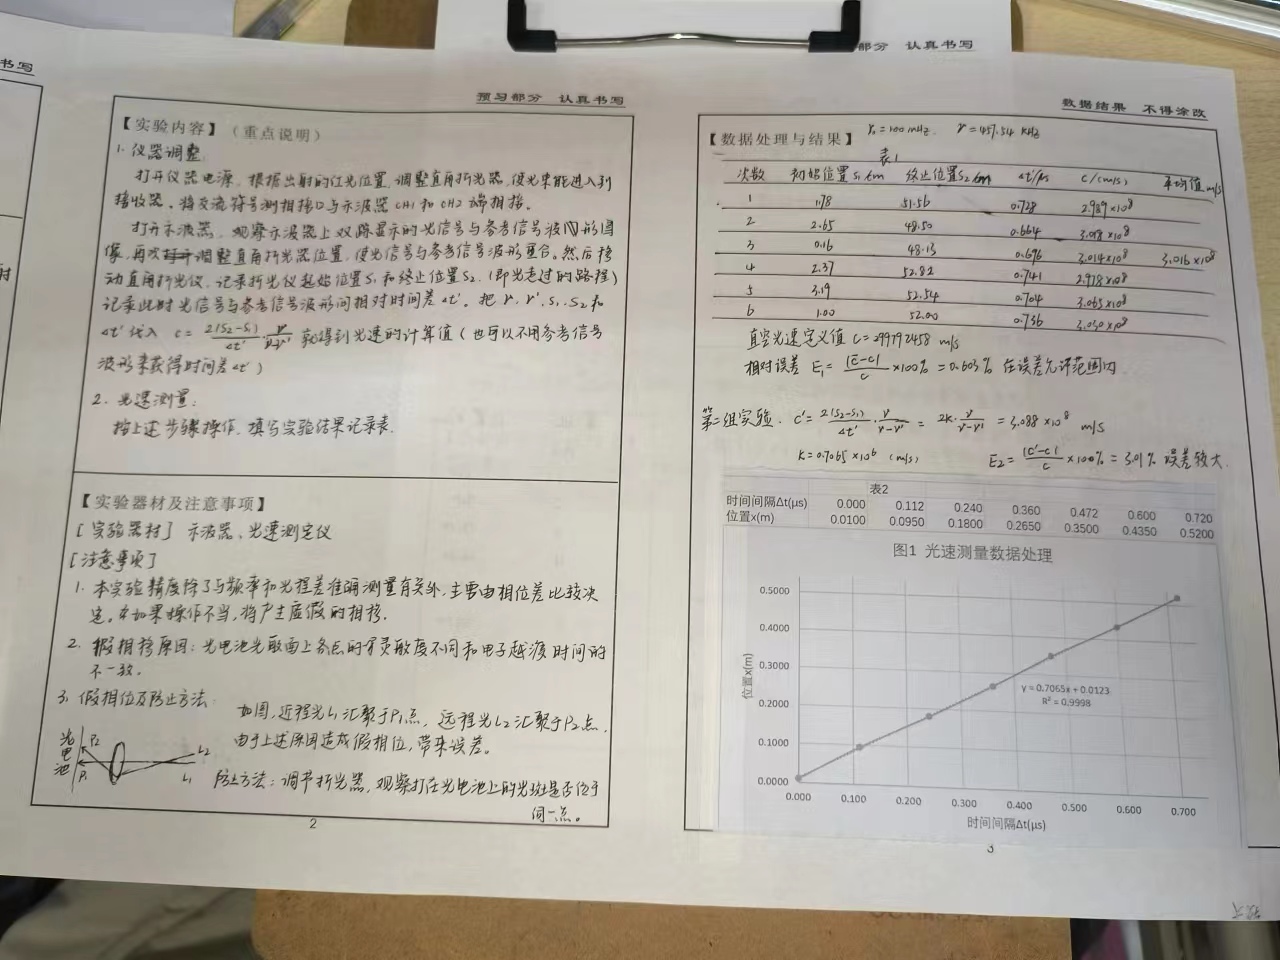 部分 认真书写
书写
预习部分 认真书写
【实验内容】（重点说明）
1. 仪器调整
打开仪器电源，根据出射的红光位置，调整直角折光器，使光束能进入到
接收器。将交流符号测相接口与示波器CH1和CH2端相接。
打开示波器，观察示波器上双踪显示的光信号与参考信号波
像，再次调整直角折光器位置，使光信号与参考信号波形重合。然后移
动直角折光仪，记录折光仪起始位置S₁和终止位置S₂，(即光走过的路程)
记录此时光信号与参考信号波形间相对时间差Δt'。把γ、γ'、S₁、S₂和
Δt'代入 C=2(S₂-S₁)/Δt'·γ/(γ-γ') 就得到光速的计算值(也可以不用参考信号
波形来获得时间差Δt')
2. 光速测量:
按上述步骤操作，填写实验结果记录表.
【实验器材及注意事项】
[实验器材] 示波器、光速测定仪
[注意事项]
1. 本实验精度除了与频率和光程差准确测量有关外，主要由相位差比较决
定。如果操作不当，将产生虚假的相移.
2. 假相移原因: 光电池光敏面上各点的灵敏度不同和电子越渡时间的
不一致.
3. 假相位及防止方法:
如图，近程光L₁汇聚于P₁点，远程光L₂汇聚于P₂点.
由于上述原因造成假相位，带来误差。
光电池 P₂ P₁ L₂ L₁
防止方法: 调节折光器，观察打在光电池上的光斑是否位于
同一点。
2
数据结果 不得涂改
【数据处理与结果】 γ₀=100MHz. γ=457.54 KHz
表1
次数 初始位置S₁/cm 终止位置S₂/cm Δt'/μs C/(m/s) 平均值m/s
1 1.78 51.56 0.728 2.989×10⁸
2 2.65 48.50 0.664 3.018×10⁸
3 0.16 48.13 0.696 3.014×10⁸ 3.016×10⁸
4 2.37 52.82 0.741 2.978×10⁸
5 3.19 52.54 0.704 3.065×10⁸
6 1.00 52.00 0.736 3.030×10⁸
真空光速定义值 C=299792458 m/s
相对误差 E₁=|C̄-C|/C×100%=0.603% 在误差允许范围内.
第二组实验. C'=2(S₂-S₁)/Δt'·γ/(γ-γ')=2K·γ/(γ-γ')=3.088×10⁸ m/s
K=0.7065×10⁶ (m/s) E₂=|C'-C|/C×100%=3.01% 误差较大.
表2
时间间隔Δt(μs) 0.000 0.112 0.240 0.360 0.472 0.600 0.720
位置x(m) 0.0100 0.0950 0.1800 0.2650 0.3500 0.4350 0.5200
图1 光速测量数据处理
0.5000
0.4000
0.3000
0.2000
0.1000
0.0000
位置x(m)
y = 0.7065x + 0.0123
R² = 0.9998
0.000 0.100 0.200 0.300 0.400 0.500 0.600 0.700
时间间隔Δt(μs)
3